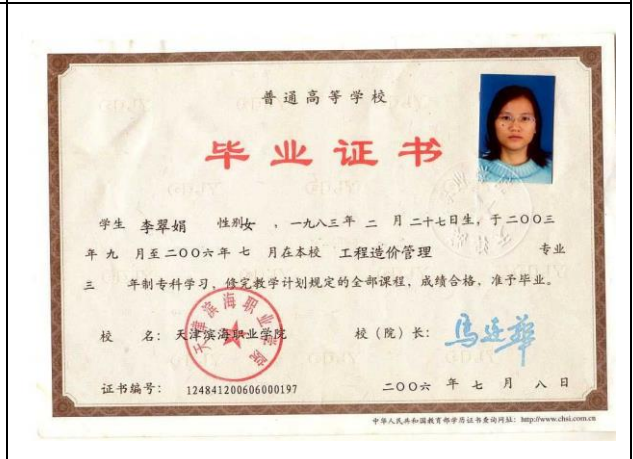 普通高等学校
毕业证书
学生 李翠娟 性别女 ，一九八三年 二 月 二十七日生，于二〇〇三
年 九 月至二〇〇六年 七 月在本校 工程造价管理 专业
三 年制专科学习，修完教学计划规定的全部课程，成绩合格，准予毕业。
校 名：天津滨海职业学院 校（院）长：马廷华
天津滨海职业学院
证书编号：124841200606000197 二〇〇六 年 七 月 八 日
中华人民共和国教育部学历证书查询网址：http://www.chsi.com.cn